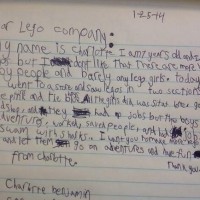 1-25-14
Dear Lego company:
My name is Charlotte. I am 7 years old and I
love legos but I don't like that There are more lego
boy people and barely any lego girls. today
I went to a store and saw legos in two sections
the pink and the blue. All the girls did was sit at home, go
and shop, and they had no jobs but the boys
adventures, worked, saved people, and had jobs
swam with sharks. I want you to make more lego
and let them go on adventures and have fun
thank you.
from Charlotte.
Charlotte benjamin